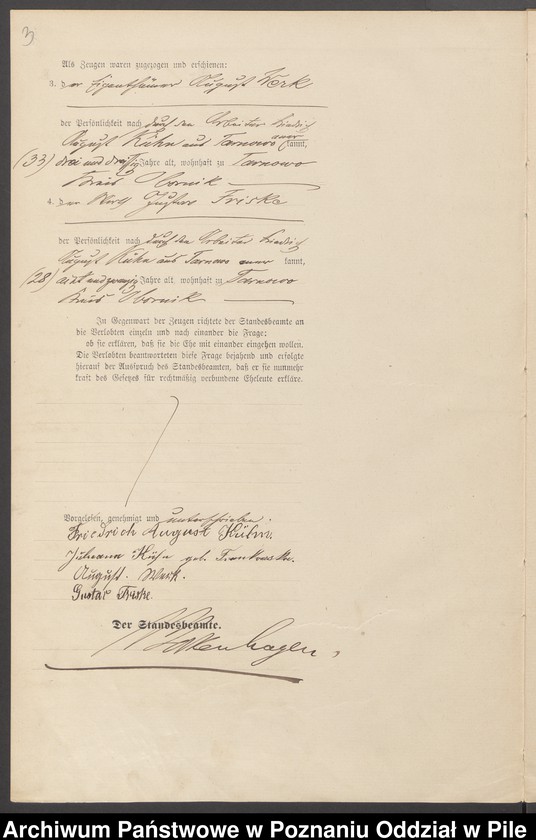 3
Als Zeugen waren zugezogen und erschienen:
3. der Eigenthümer August Werk
der Persönlichkeit nach durch den Arbeiter Friedrich
August Kühn aus Tarnowo aner kannt,
(33) drei und dreißig Jahre alt, wohnhaft zu Tarnowo
Kreis Obornik
4. der Gustav Friske
der Persönlichkeit nach durch den Arbeiter Friedrich
August Kühn aus Tarnowo aner kannt,
(28) acht und zwanzig Jahre alt, wohnhaft zu Tarnowo
Kreis Obornik
In Gegenwart der Zeugen richtete der Standesbeamte an
die Verlobten einzeln und nach einander die Frage:
ob sie erklären, daß sie die Ehe mit einander eingehen wollen.
Die Verlobten beantworteten diese Frage bejahend und erfolgte
hierauf der Ausspruch des Standesbeamten, daß er sie nunmehr
kraft des Gesetzes für rechtmäßig verbundene Eheleute erkläre.
Vorgelesen, genehmigt und unterschrieben.
Friedrich August Kühn.
Kühn geb.
August Werk.
Gustav Friske.
Der Standesbeamte.
Archiwum Państwowe w Poznaniu Oddział w Pile